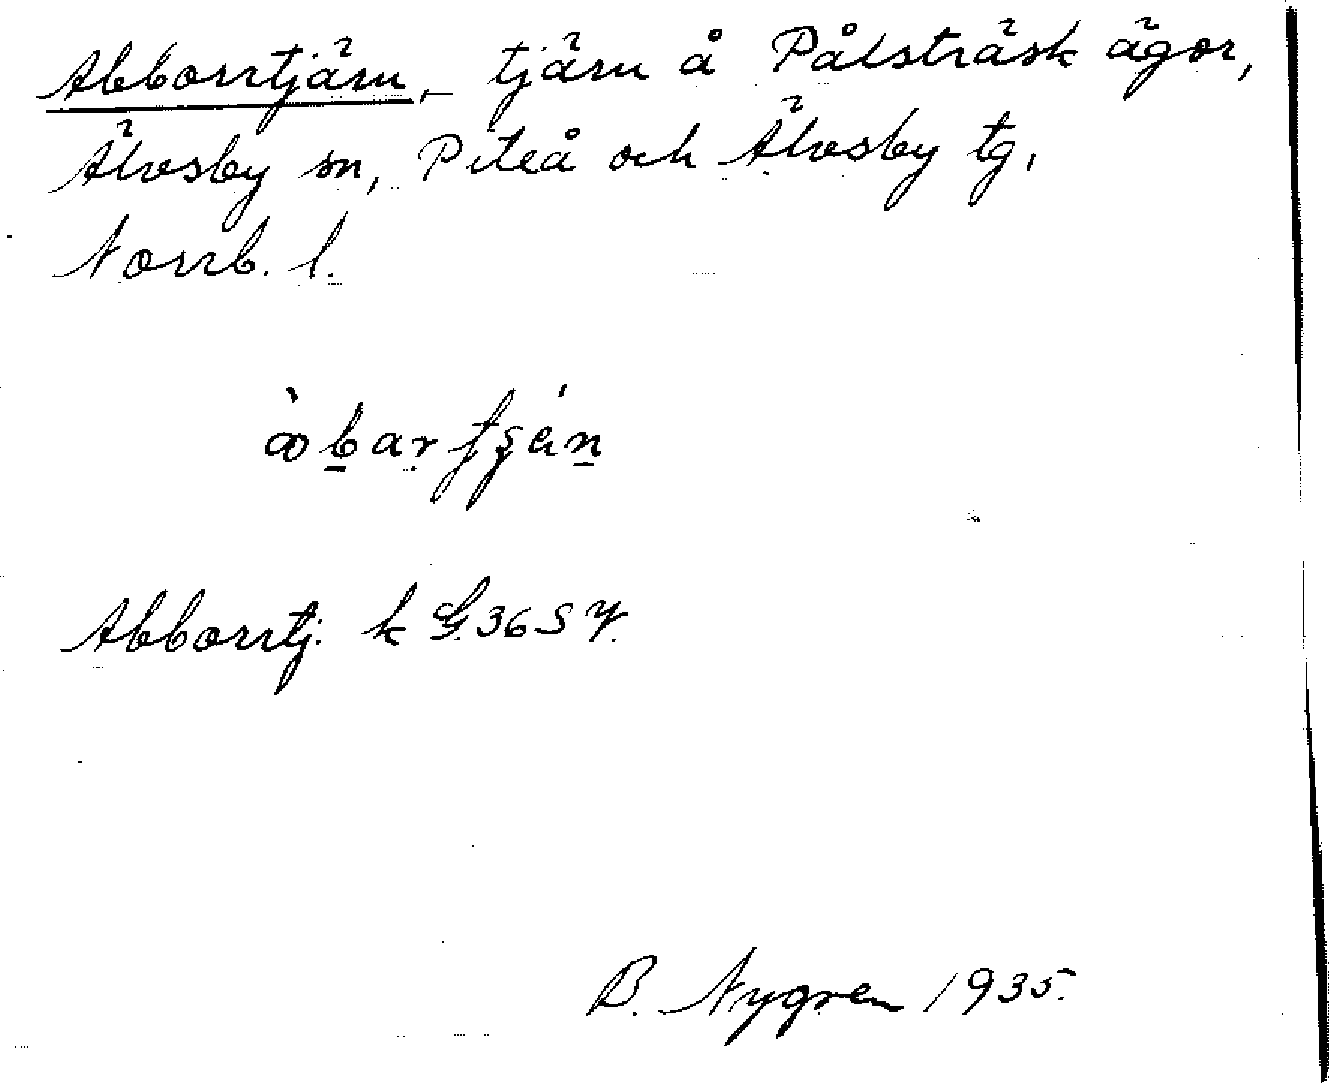 Abborrtjärn, tjärn å Pålsträsk ägor,
Älvsby sn, Piteå och Älvsby tg,
Norrb. l.
Abborrtj. k G. 36 S
B. Nygren 1935.